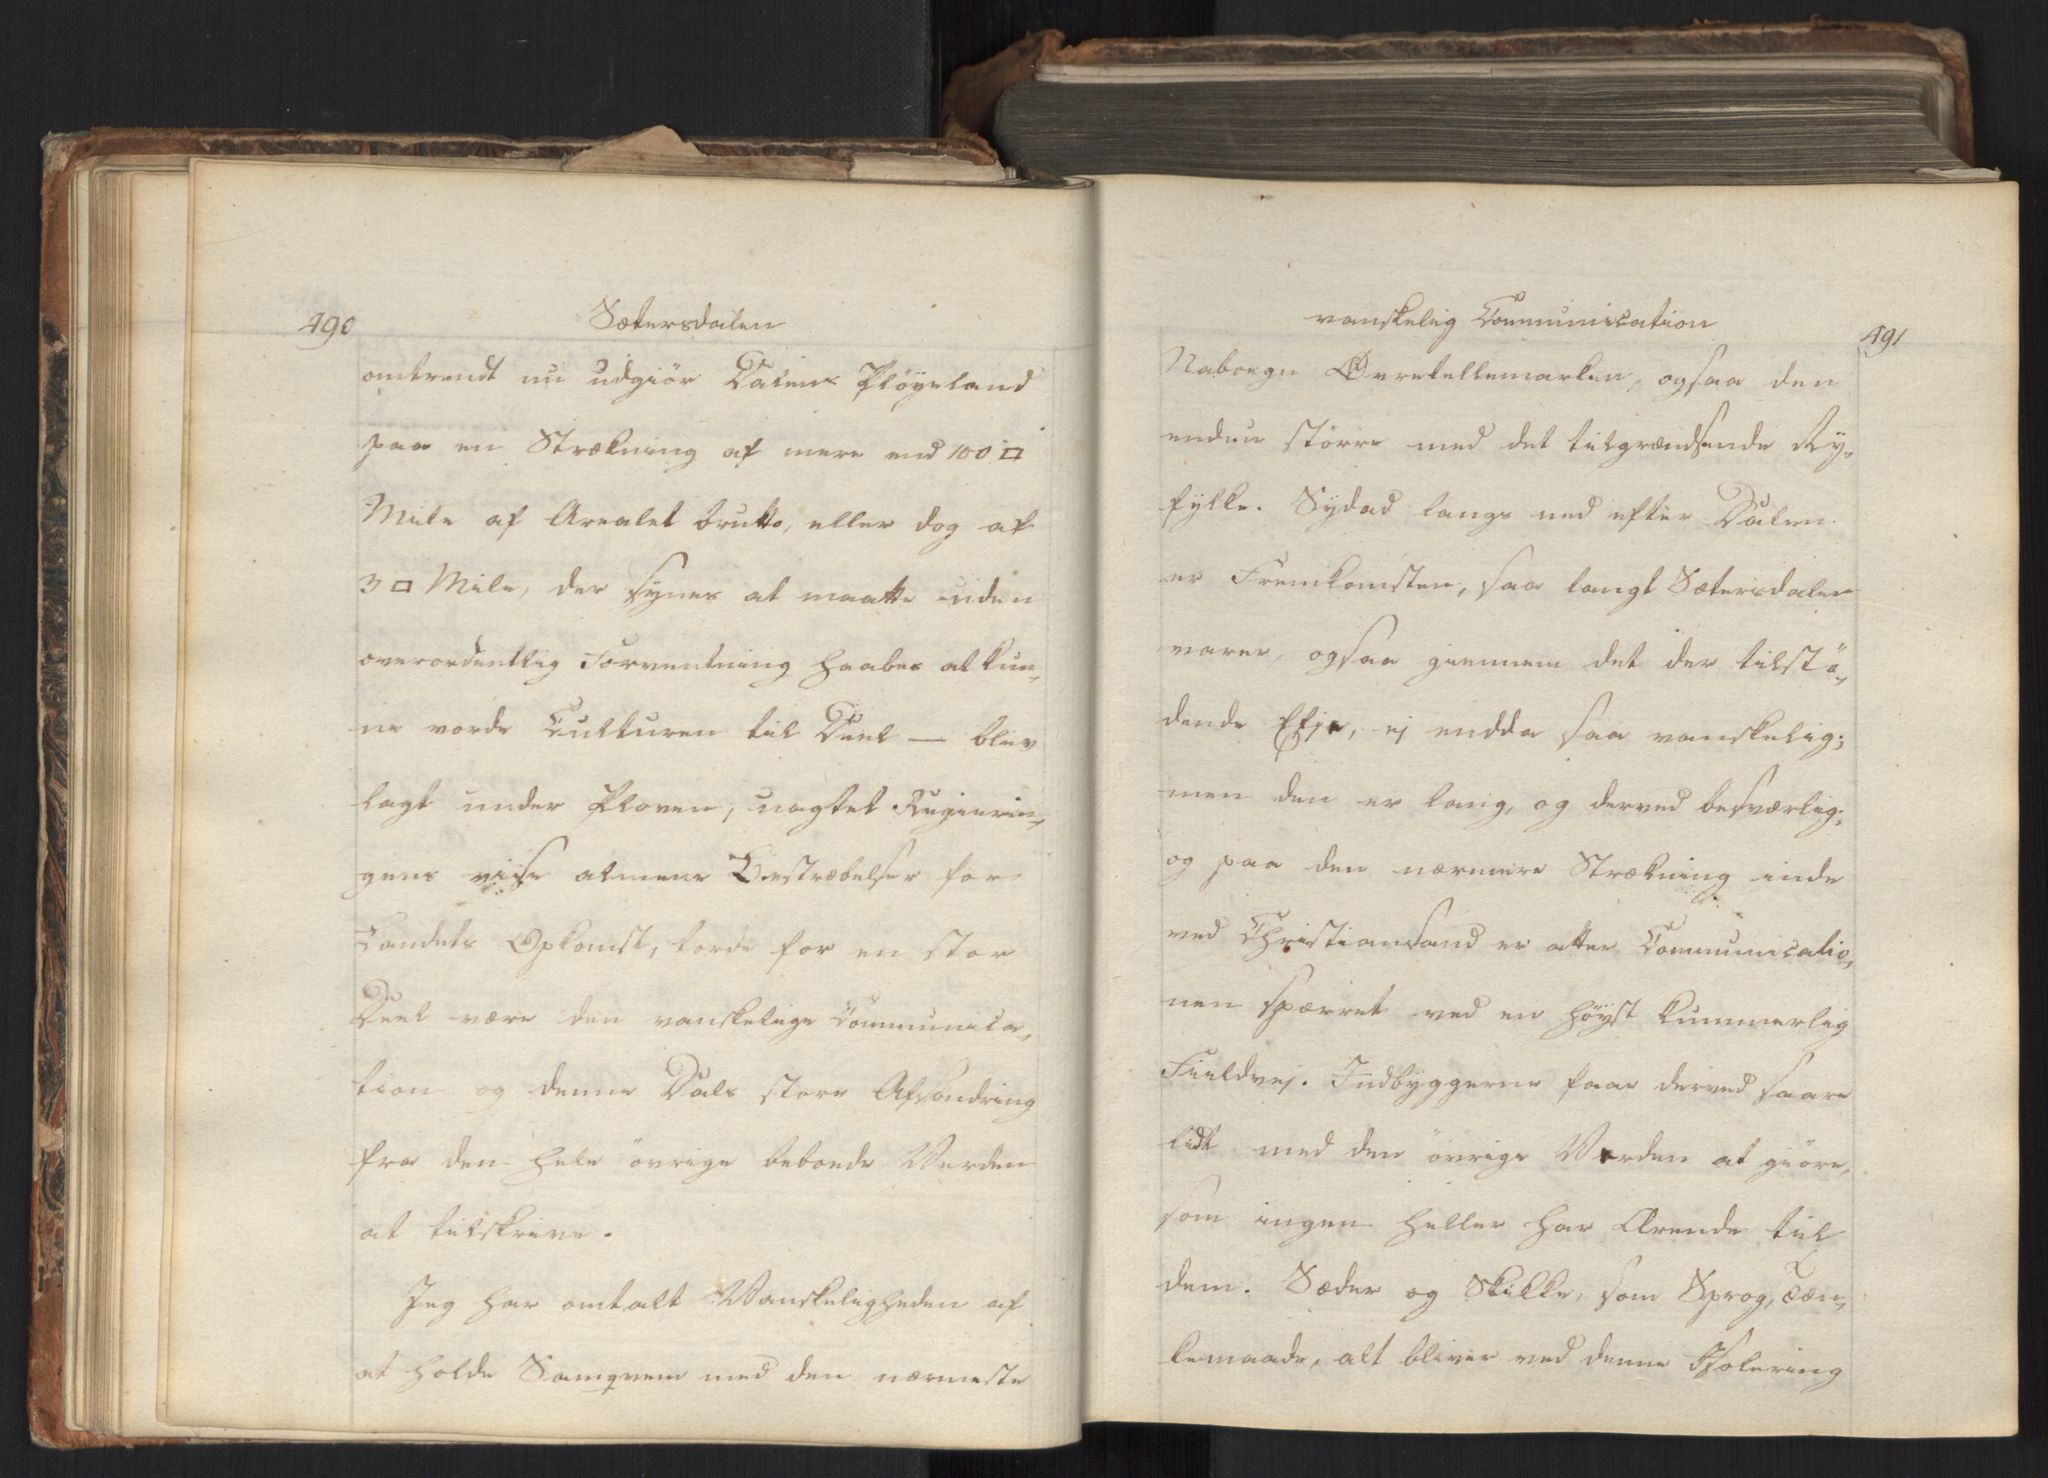 490
Sætersdalen
omtrendt nu udgiör Dalens Plöyeland
paa en Strækning af mere end 100 □
Mile af Arealet brutto, eller dog af
3 □ Mile, der synes at maatte uden
overordentlig Forventning haabes at kun„
ne vorde Culturen til Deel — blev
lagt under Ploven, uagtet Regierin„
gens viise almene Bestræbelser for
Landets Opkomst, torde for en stor
Deel være den vanskelige Communica„
tion og denne Dals store Afsondring
fra den hele övrige beboede Verden
at tilskrive.
Jeg har omtalt Vanskeligheden af
at holde Samqvem med den nærmeste
vanskelig Communication
491
Naboegn Övretellemarken, ogsaa den
endnu större med det tilgrændsende Ry„
fylke. Sydad langs ned efter Dalen
er Fremkomsten, saa langt Sætersdalen
varer, ogsaa giennem det der tilstö„
dende Efje, ej endda saa vanskelig;
men den er lang, og derved besværlig;
og paa den nærmere Strækning inde
ved Christiansand er atter Communicatio„
nen spærret ved en höyst kummerlig
Fieldvej. Indbyggerne faae derved saare
lidt med den övrige Verden at giöre,
som ingen heller har Ærende til
dem. Sæder og Skikke, som Sprog, Tæn„
kemaade, alt bliver ved denne Isolering